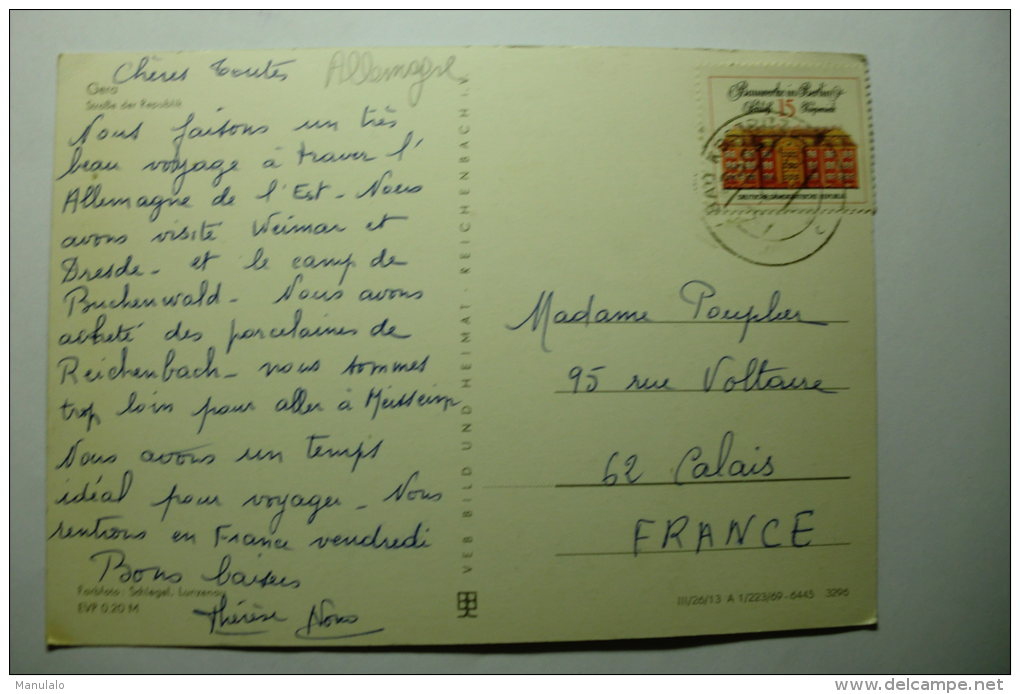 Chères toutes
Allemagne
Gera
Straße der Republik
Nous faisons un très
beau voyage à traver l'
Allemagne de l'Est - Nous
avons visité Weimar et
Dresde - et le camp de
Buchenwald - Nous avons
acheté des porcelaines de
Reichenbach - nous sommes
trop loin pour aller à
Nous avons un temps
idéal pour voyager - Nous
rentrons en France vendredi
Bons baisers
Thérèse
Farbfoto: Schlegel, Lunzenau
EVP 0.20 M
VEB BILD UND HEIMAT · REICHENBACH I.V.
Bauwerke in Berlin
15
DEUTSCHE DEMOKRATISCHE REPUBLIK
Madame
95 rue Voltaire
62 Calais
FRANCE
III/26/13 A 1/223/69-6445 3296
Manulalo
delcampe.net